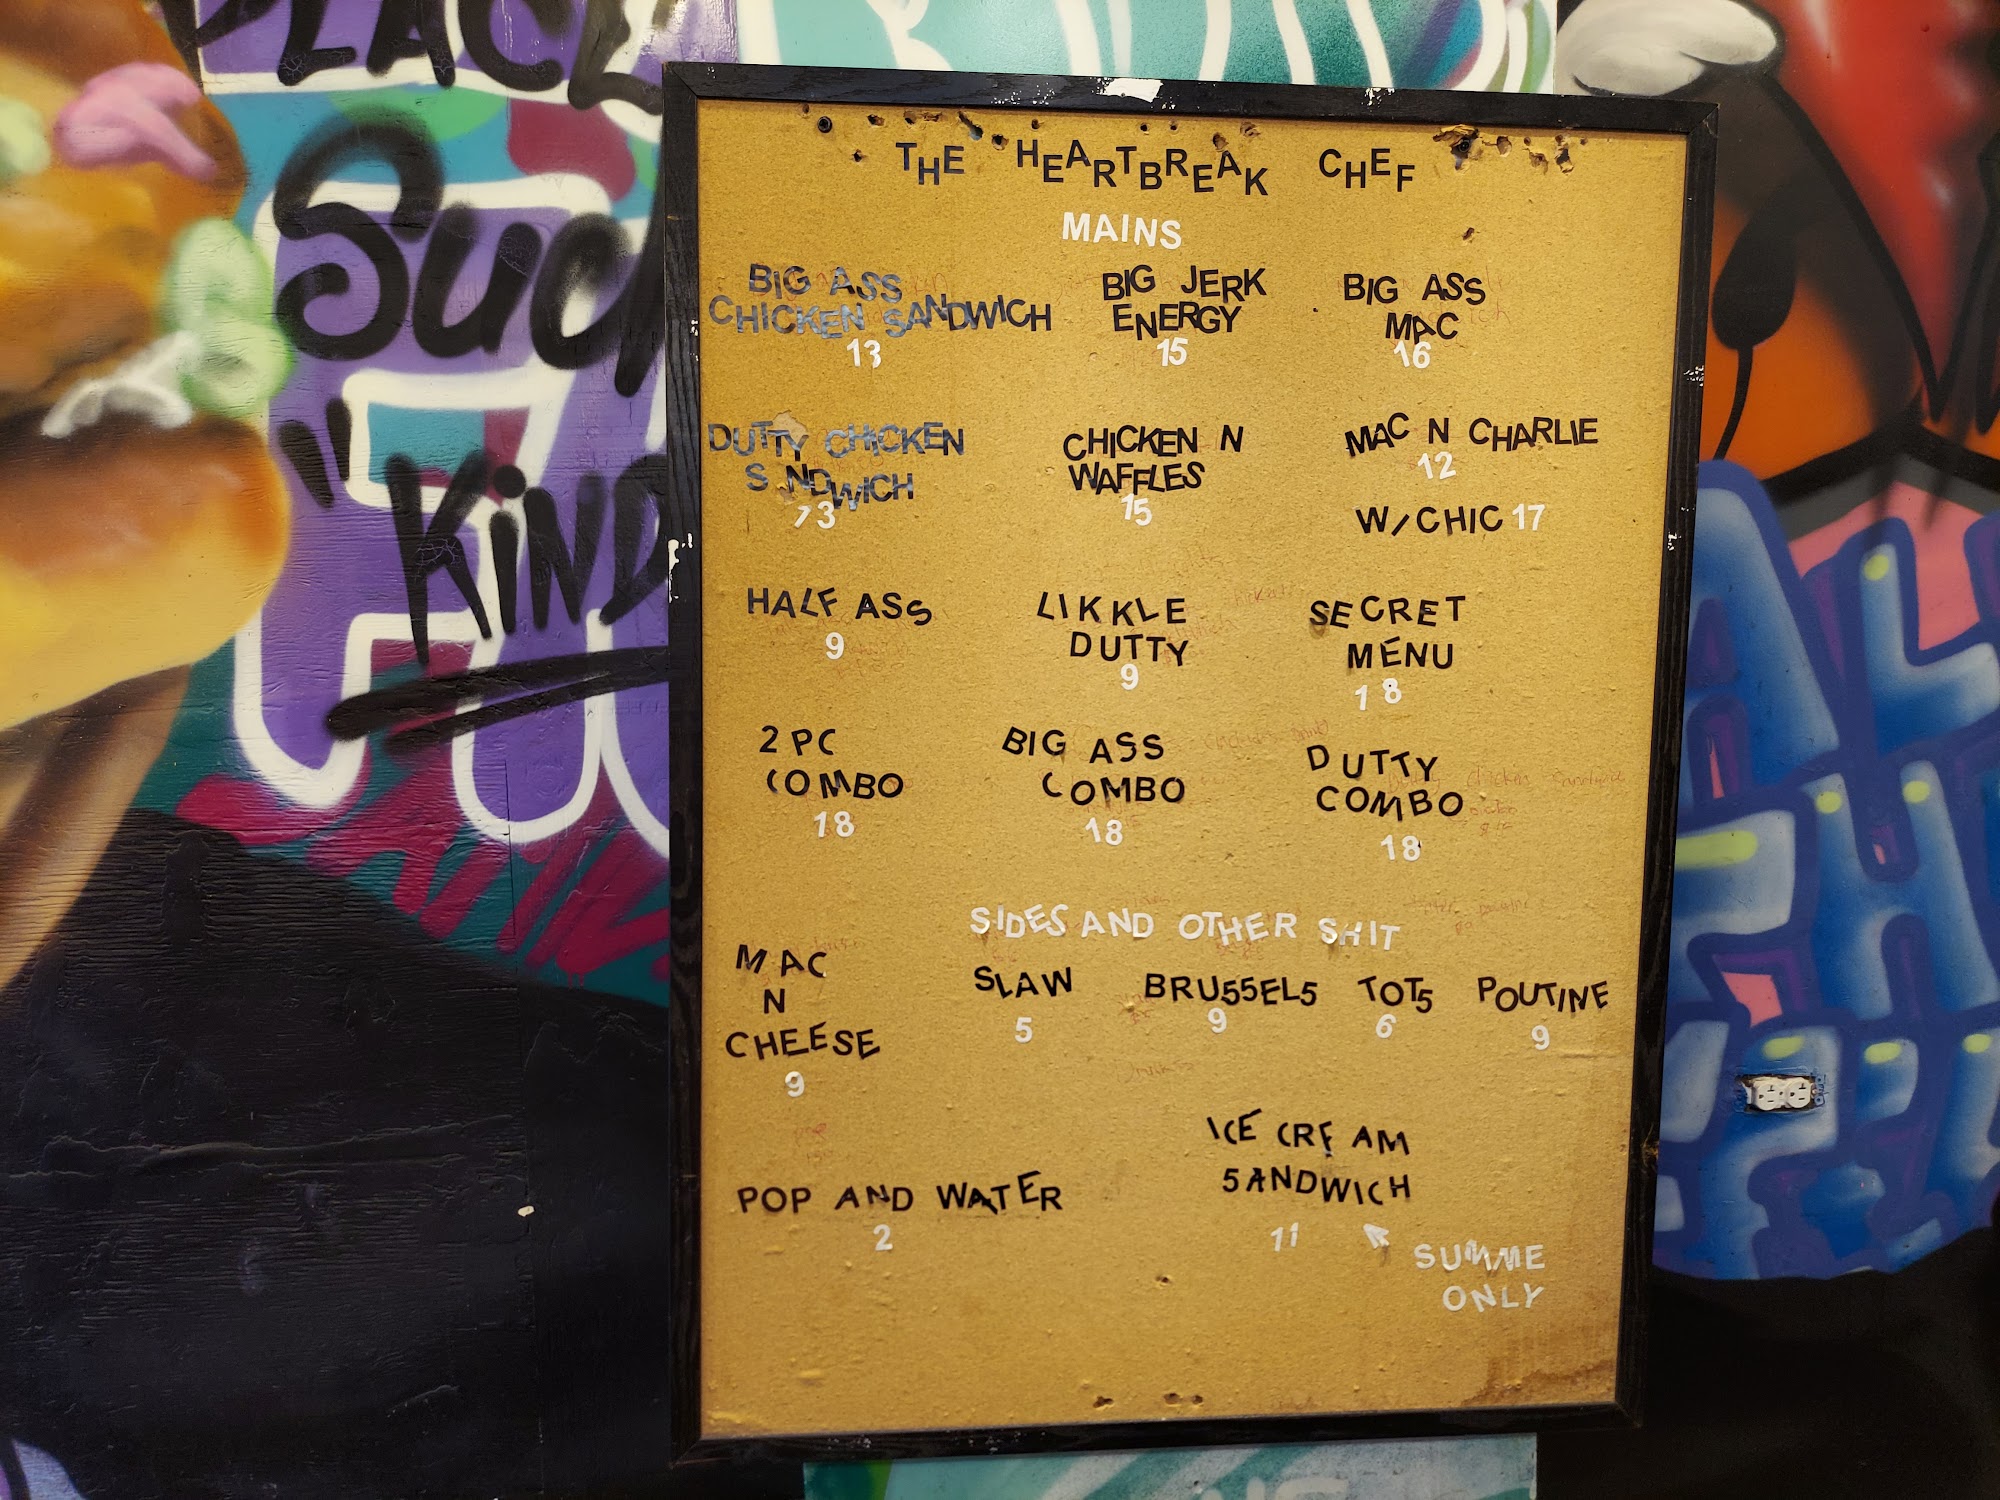 PLACE
Suc
"KIND
THE HEARTBREAK CHEF
MAINS
BIG ASS
CHICKEN SANDWICH
13
BIG JERK
ENERGY
15
BIG ASS
MAC
16
DUTTY CHICKEN
S NDWICH
13
CHICKEN N
WAFFLES
15
MAC N CHARLIE
12
W/CHIC 17
HALF ASS
9
LIKKLE
DUTTY
9
SECRET
MENU
18
2 PC
COMBO
18
BIG ASS
COMBO
18
DUTTY
COMBO
18
SIDES AND OTHER SHIT
MAC
N
CHEESE
9
SLAW
5
BRU55EL5
9
TOT5
6
POUTINE
9
POP AND WATER
2
ICE CREAM
5ANDWICH
11
SUMME
ONLY